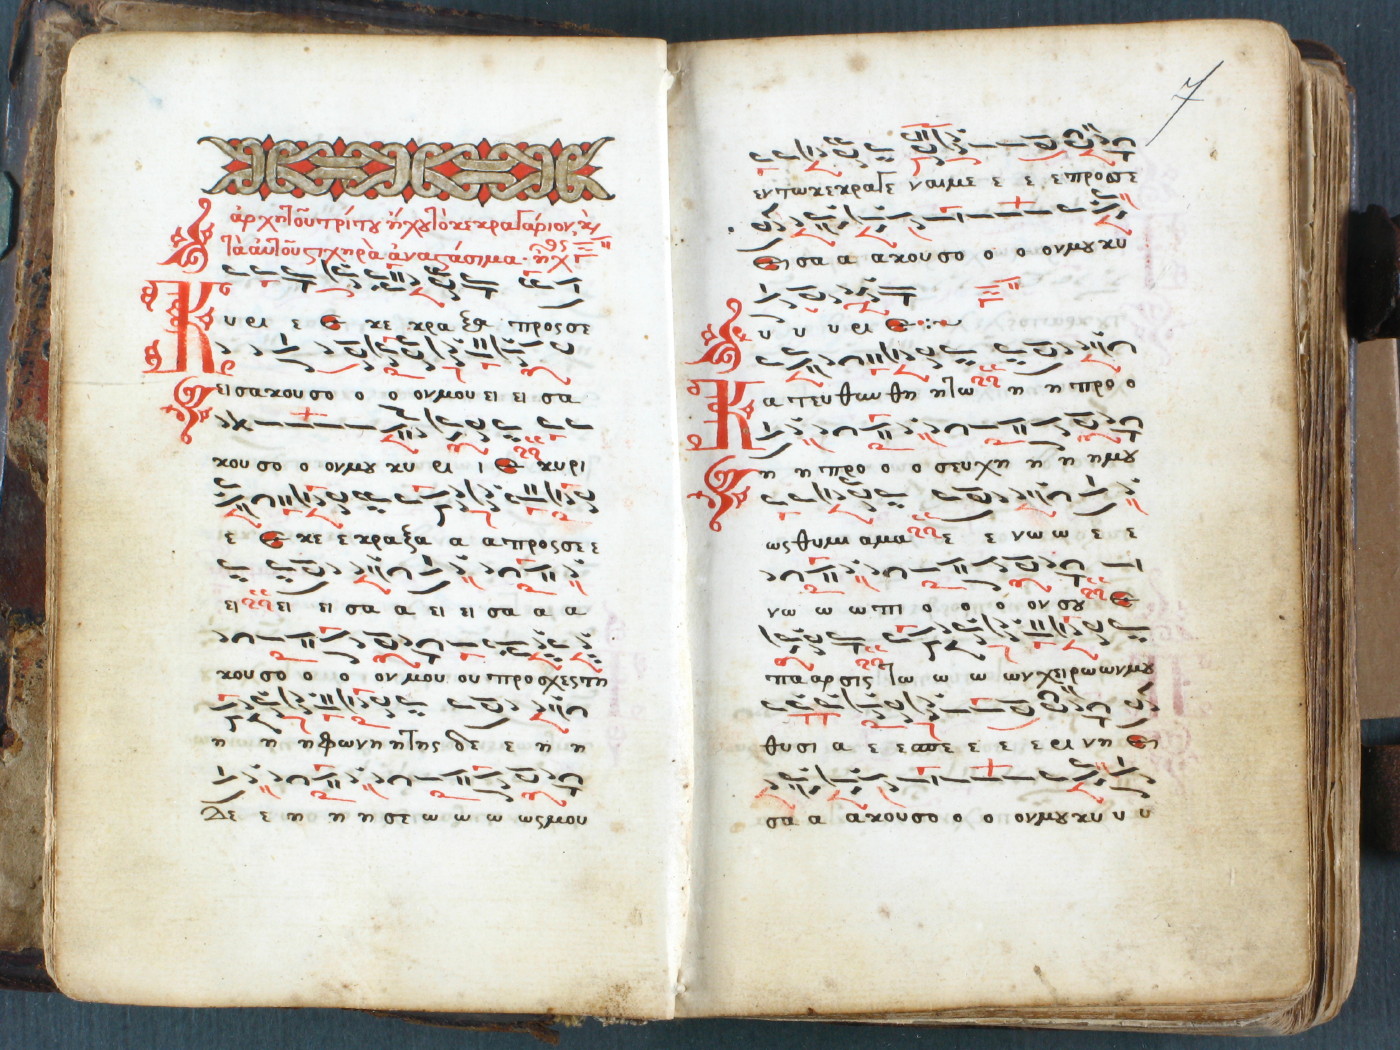 ἀρχὴ τοῦ τρίτου ἤχου τὸ κεκραγάριον, κὶ
τὰ αὐτοῦ στιχηρὰ ἀναστάσιμα· ἦχ
Κυρι ε ε κε κρα ξα προς σε
εισακουσο ο ο ον μου ει ει σα
κου σο ο ον μου κυ ρι ι ε κυρι
ε ε κε ε κραξα α α προς σε ε
ει ει ει σα α ει ει σα α α
κου σο ο ο ον μου ου προσχες τη
η η η φωνη η της δε ε η η
δε ε η η η σε ω ω ω ως μου
7
εν τω κεκραγε ναι με ε ε ε προς σε
ει σα α ακουσο ο ο ον μου κυ
υ υ υ ρι ε
Κα τευθυνθη η τω η η προ ο
η η προ ο ο σευχη η η η μου
ως θυμι αμα ε ε νω ω ε ε
νω ω ω πι ο ο ο ον σου ε
παρσις τω ω ω ων χειρω ων μου
θυσι α ε ε ε ε ε ε ρι νη ει
σα α ακουσο ο ο ον μου κυ υ υ